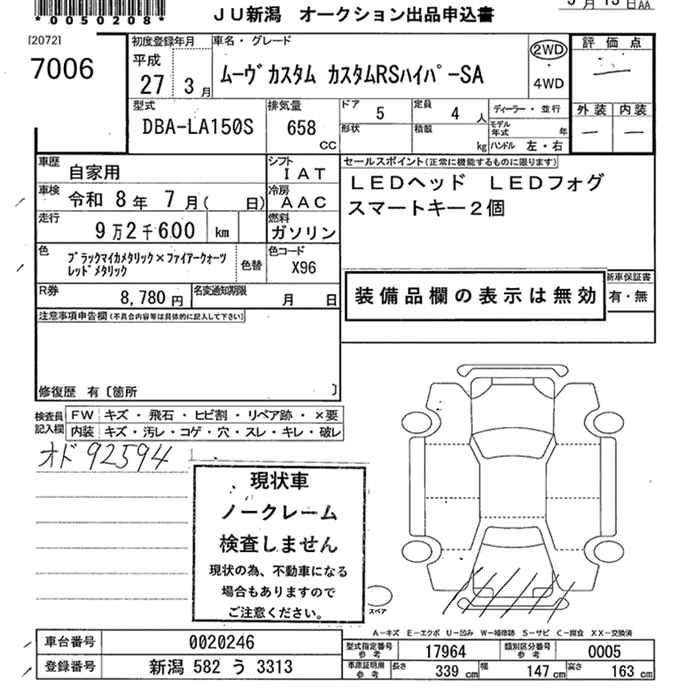 *0050208*
JU新潟 オークション出品申込書
[2072]
7006
初度登録年月
平成
27 3月
車名・グレード
ムーヴカスタム カスタムRSハイパーSA
2WD
4WD
評価点
—
外装 内装
— —
型式
DBA-LA150S
排気量
658
CC
ドア 5
定員 4 人
形状
積載 kg
ディーラー・並行
モデル年式 年
ハンドル 左・右
車歴
自家用
シフト
IAT
車検
令和 8年 7月( 日)
冷房
AAC
走行
9万2千600 km
燃料
ガソリン
色
ブラックマイカメタリック×ファイアークォーツ
レッドメタリック
色替
色コード
X96
R券
8,780円
名変通知期限
月 日
セールスポイント(正常に機能するものに限ります)
LEDヘッド LEDフォグ
スマートキー2個
装備品欄の表示は無効
新車保証書
有・無
注意事項申告欄(不具合内容等は具体的に記入して下さい)
修復歴 有〔箇所 〕
検査員
記入欄
FW キズ・飛石・ヒビ割・リペア跡・×要
内装 キズ・汚レ・コゲ・穴・スレ・キレ・破レ
オド 92594
現状車
ノークレーム
検査しません
現状の為、不動車になる
場合もありますので
ご注意ください。
スペア
A-キズ E-エクボ U-凹み W-補修跡 S-サビ C-腐食 XX-交換済
車台番号 0020246
登録番号 新潟 582 う 3313
型式指定番号
参考
17964
類別区分番号
参考
0005
車庫証明用
参考
長さ 339 cm
幅 147 cm
高さ 163 cm